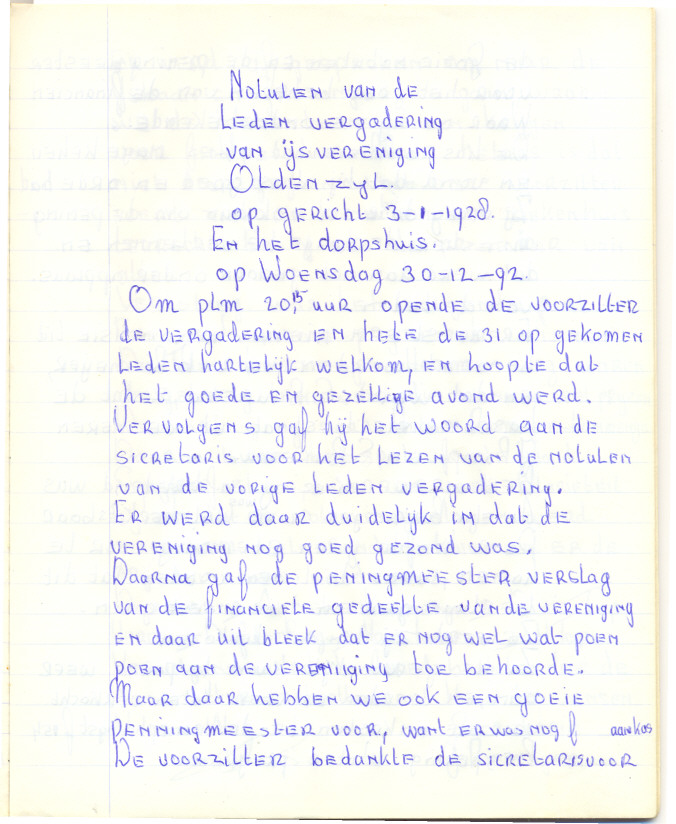 Notulen van de
Leden vergadering
van ijsvereniging
Oldenzyl.
op gericht 3-1-1928.
En het dorpshuis.
op Woensdag 30-12-92.
Om plm 20,15 uur opende de voorzitter
de vergadering en hete de 31 op gekomen
leden hartelijk welkom, en hoopte dat
het goede en gezellige avond werd.
Vervolgens gaf hij het woord aan de
sicretaris voor het lezen van de notulen
van de vorige leden vergadering.
Er werd daar duidelijk in dat de
vereniging nog goed gezond was.
Daarna gaf de peningmeester verslag
van de financiele gedeelte van de vereniging
en daar uit bleek dat er nog wel wat poen
poen aan de vereniging toe behoorde.
Maar daar hebben we ook een goeie
penningmeester voor, want er was nog f aan kas
De voorzitter bedankte de sicretaris voor